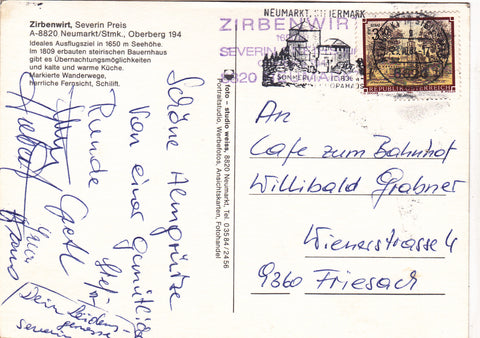 Zirbenwirt, Severin Preis
A-8820 Neumarkt/Stmk., Oberberg 194
Ideales Ausflugsziel in 1650 m Seehöhe.
Im 1809 erbauten steirischen Bauernhaus
gibt es Übernachtungsmöglichkeiten
und kalte und warme Küche.
Markierte Wanderwege,
herrliche Fernsicht, Schilift.
foto – studio weiss, 8820 Neumarkt, Tel. 03584/2456
Portraitstudio, Werbefotos, Ansichtskarten, Fotohandel
NEUMARKT, STEIERMARK
ZIRBENWIRT
SEVERIN
REPUBLIK ÖSTERREICH
Schöne Almgrüße
von einer gemütlichen
Runde
Gretl
Dein Leidens-
genosse
Severin
An
Cafe zum Bahnhof
Willibald Grabner
Wienerstrasse 4
9360 Friesach